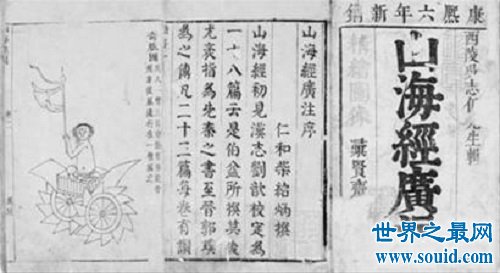 康熙六年新鐫
西陵吳志伊先生輯
山海經廣
賢齋
山海經廣注序
仁和柴紹炳撰
山海經初見漢志劉歆校定為
一十八篇云是伯益所撰其後
尤袤指為先秦之書至晉郭璞
為之傳凡二十三篇每卷有讚
奇肱國
世界之最网
www.souid.com